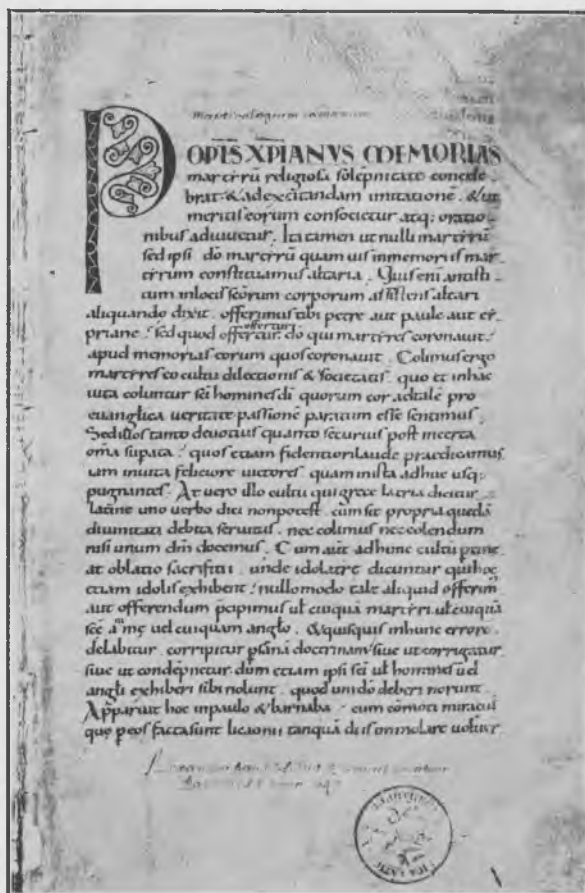 Martirologium romanum
POPLS XPIANVS MEMORIAS
martyrũ religiosa sollepnitate concele
brat. & ad excitandam imitationẽ. & ut
meritis eorum consocietur atq; oratio
nibus adiuuetur. Ita tamen ut nulli martyrũ
sed ipsi dõ martyrũ quamuis in memoriis mar
tyrum constituamus altaria. Quis enĩ antisti
tum in locis scõrum corporum assistens altari
aliquando dixit. offerimus tibi petre aut paule aut cy
priane. sed quod offertur
offertur dõ qui martyres coronauit.
apud memorias eorum quos coronauit. Colimus ergo
martyres eo cultu dilectionis & societatis. quo et in hac
uita coluntur scĩ homines dĩ quorum cor ad tale pro
euanglica ueritate passionẽ paratum esse sentimus.
Sed illos tanto deuotius quanto securius post incerta
om̃a supata. quos etiam fidentiori laude praedicamus
iam in uita feliciore uictores. quam in ista adhuc usq;
pugnantes. At uero illo cultu qui grece latria dicitur
latine uno uerbo dici non potest. cum sit propria quedã
diuinitati debita seruitus. nec colimus nec colendum
nisi unum dm̃ docemus. Cum aut̃ ad hunc cultũ ptine
at oblatio sacrificii. unde idolatrę dicuntur qui hoc
etiam idolis exhibent. nullomodo tale aliquid offerim̃
aut offerendum p̃cipimus ul̃ cuiquã martyri ul̃ cuiquã
scẽ anĩmę uel cuiquam anglo. & quisquis in hunc errorẽ
delabitur. corripitur p sanã doctrinam siue ut corrigatur
siue ut condẽpnetur. dum etiam ipsi scĩ ul̃ homines uel
angli exhiberi sibi nolunt. quod uni dõ deberi norunt.
Apparuit hoc in paulo & barnaba. cum cõmoti miraculis
quę p eos facta sunt licaonii tanquã diis immolare uoluer̃